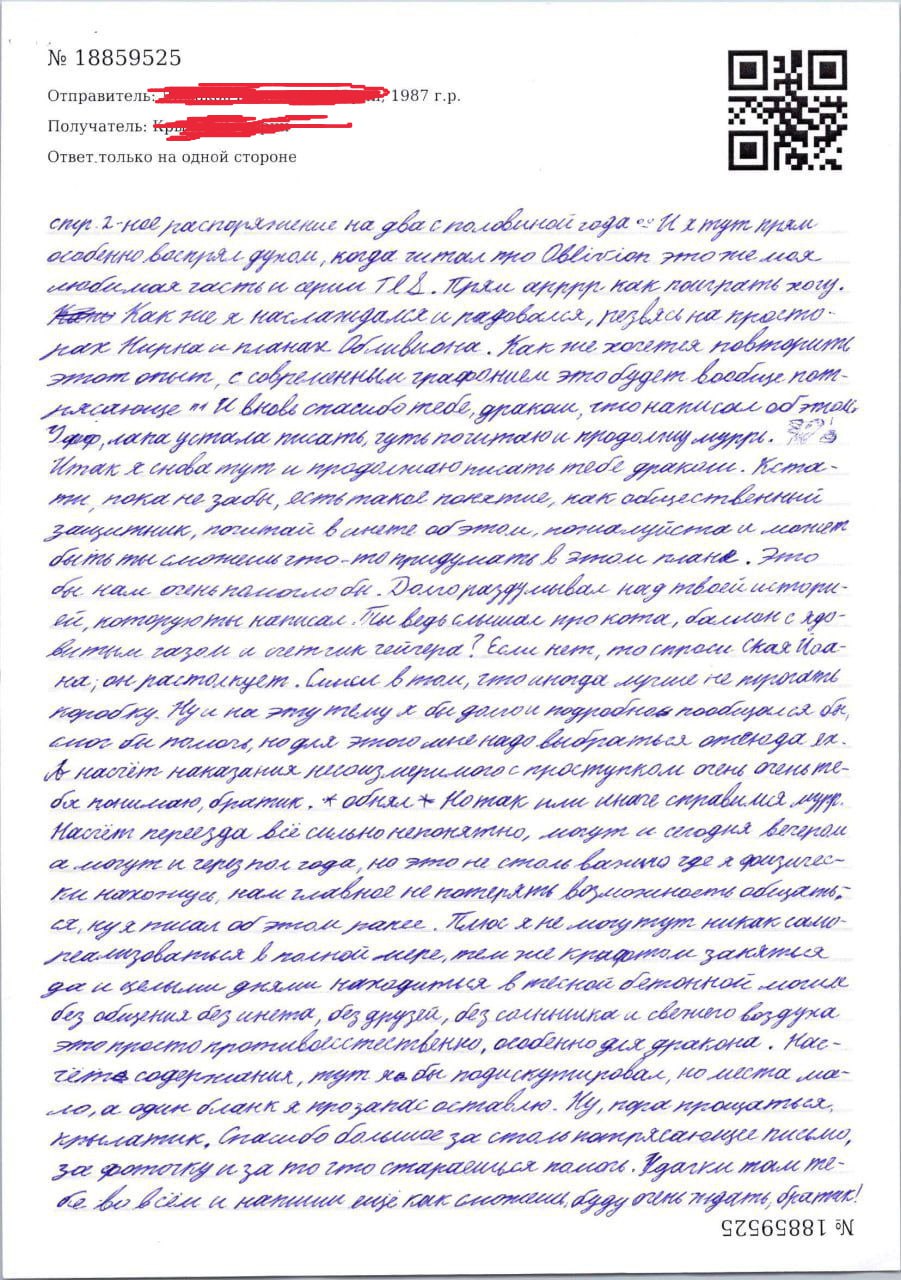 № 18859525
Отправитель: , 1987 г.р.
Получатель:
Ответ.только на одной стороне
стр. 2-ное распоряжение на два с половиной года И я тут прям
особенно воспрял духом, когда читал про Oblivion это же моя
любимая часть и серии TES. Прям арррр как поиграть хочу.
Как же я наслаждался и радовался, резвясь на просто-
рах Нирна и планах Обливиона. Как же хочется повторить
этот опыт, с современным графонием это будет вообще пот-
рясающе ^^ И вновь спасибо тебе, дракош, что написал об этом.
Уфф, лапа устала писать, чуть почитаю и продолжу муррь.
Итак я снова тут и продолжаю писать тебе дракош. Кста-
ти, пока не забы, есть такое понятие, как общественный
защитник, почитай в инете об этом, пожалуйста и может
быть ты сможешь что-то придумать в этом плане. Это
бы нам очень помогло бы. Долго раздумывал над твоей истори-
ей, которую ты написал. Ты ведь слышал про кота, баллон с ядо-
витым газом и счетчик гейгера? Если нет, то спроси Ская Йоа-
на, он растолкует. Смысл в том, что иногда лучше не трогать
коробку. Ну и на эту тему я бы долго и подробно пообщался бы,
смог бы помочь, но для этого мне надо выбраться отсюда эх.
А насчёт наказания несоизмеримого с проступком очень очень те-
бя понимаю, братик. *обнял* Но так или иначе справимся мурр.
Насчёт переезда всё сильно непонятно, могут и сегодня вечером
а могут и через пол года, но это не столь важно где я физичес-
ки нахожусь, нам главное не потерять возможность общать-
ся, ну я писал об этом ранее. Плюс я не могу тут никак само-
реализоваться в полной мере, тем же крафтом заняться
да и целыми днями находиться в тесной бетонной могиле
без общения без инета, без друзей, без солнышка и свежего воздуха
это просто противоестественно, особенно для дракона. Нас-
чёт содержания, тут я бы подискутировал, но места ма-
ло, а один бланк я прозапас оставлю. Ну, пора прощаться,
крылатик. Спасибо большое за столь потрясающее письмо,
за фоточку и за то что стараешься помочь. Удачки там те-
бе во всём и напиши ещё как сможешь, буду очень ждать, братик!
№ 18859525